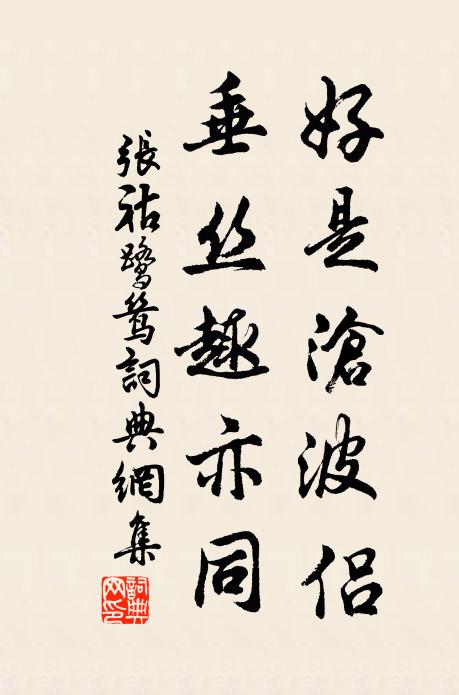 好是滄波侶
垂丝趣亦同
張祜鷺鷥詞典網集
詞典网印